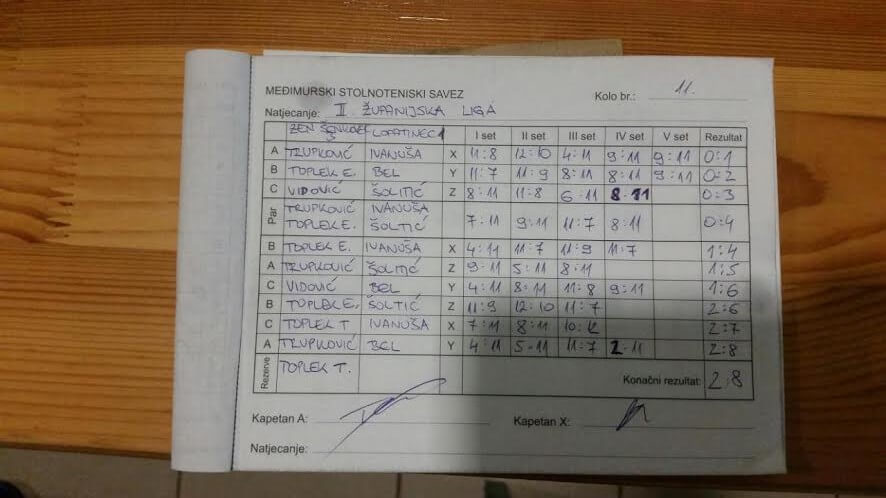 MEĐIMURSKI STOLNOTENISKI SAVEZ
Kolo br.: 11.
Natjecanje: II ŽUPANIJSKA LIGA
LOPATINEC 1 I set II set III set IV set V set Rezultat
A TRUPKOVIĆ IVANUŠA X 11:8 12:10 4:11 9:11 9:11 0:1
B TOPLEK E. BEL Y 11:7 11:9 8:11 8:11 9:11 0:2
C VIDOVIĆ ŠOLTIĆ Z 8:11 11:8 6:11 8-11 0:3
Par TRUPKOVIĆ IVANUŠA
TOPLEK E. ŠOLTIĆ 7-11 9:11 11:7 8:11 0:4
B TOPLEK E. IVANUŠA X 4:11 11:7 11:9 11:7 1:4
A TRUPKOVIĆ ŠOLTIĆ Z 9-11 5:11 8:11 1:5
C VIDOVIĆ BEL Y 4:11 8:11 11:8 9:11 1:6
B TOPLEK E. ŠOLTIĆ Z 11:9 12:10 11:7 2:6
C TOPLEK T IVANUŠA X 7:11 8:11 10:12 2:7
A TRUPKOVIĆ BEL Y 4:11 5-11 11:7 2-11 2:8
Rezerve TOPLEK T. Konačni rezultat: 2:8
Kapetan A: Kapetan X:
Natjecanje: